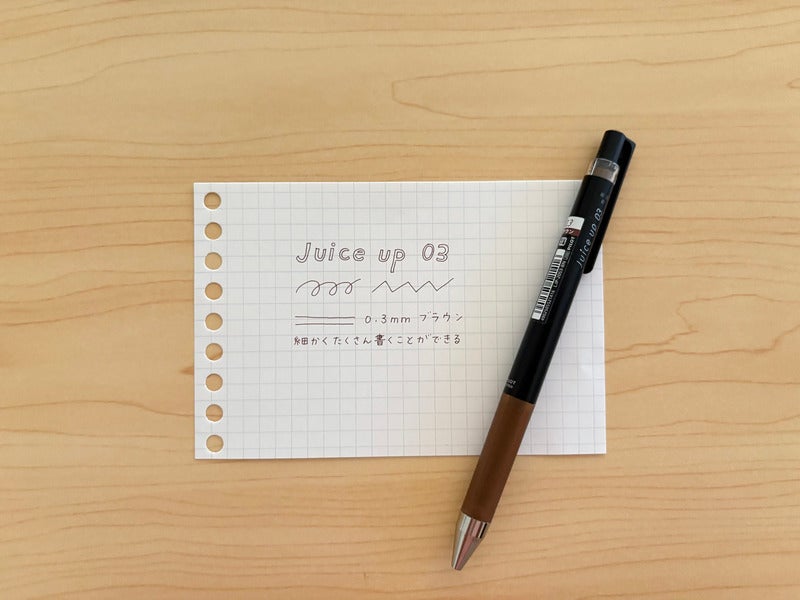 Juice up 03
0.3mm ブラウン
細かくたくさん書くことができる
Juice up 03
PILOT